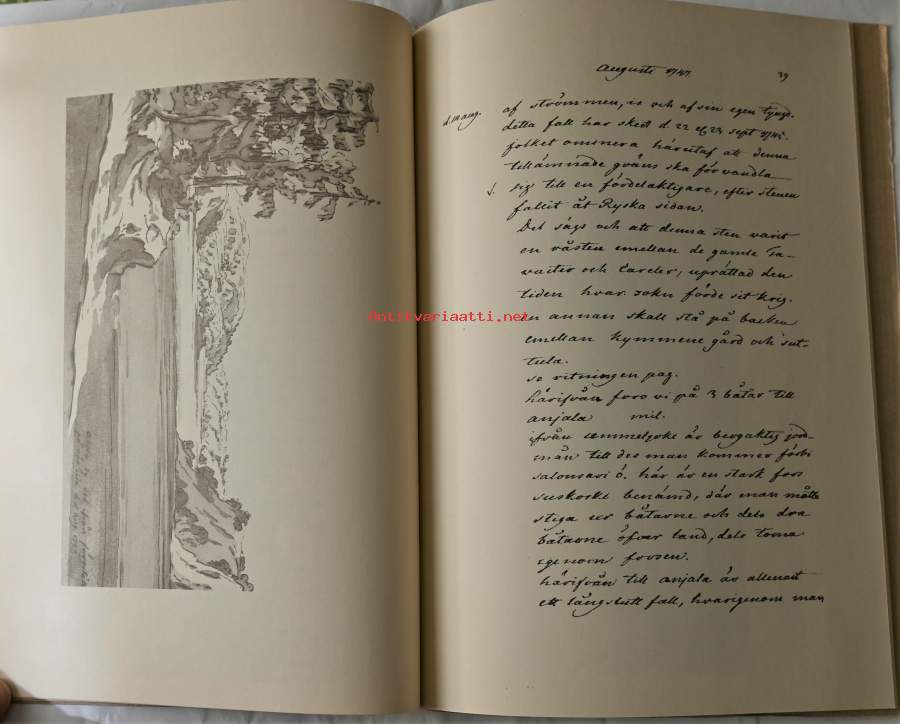 Augusti 1747.
39
d. 10 aug.
af strömmen, is och af sin egen tyngd.
detta fall har skedt d. 22 el 23 sept 1745.
folket ominera härutaf att denna
tillämnade gräns ska förvandla
sig till en fördelaktigare, efter stenen
fallit åt Ryska sidan.
Det sägs och att denna sten varit
en råsten emellan de gamle Ta-
vaster och Careler, uprättad den
tiden hvar sokn förde sit krig.
en annan skall stå på backen
emellan Kymmene gård och Sut-
tula.
se ritningen pag.
härifrån foro vi på 3 båtar till
anjala mil.
ifrån memmeljoke är bergaktig jord-
mån till des man kommer förbi
salonsari ö. här är en stark fors
suskoski benämd, där man måtte
stiga ur båtarne och dels dra
båtarne öfver land, dels toma
igenom forsen.
härifrån till anjala är allenast
ett långslutt fall, hvarigenom man
Antikvariaatti.net